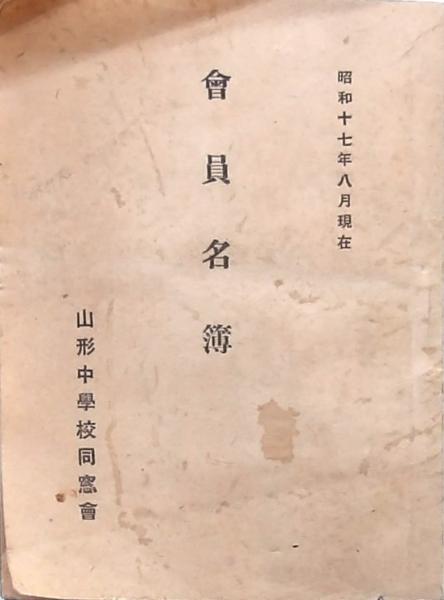 昭和十七年八月現在
會員名簿
山形中學校同窓會